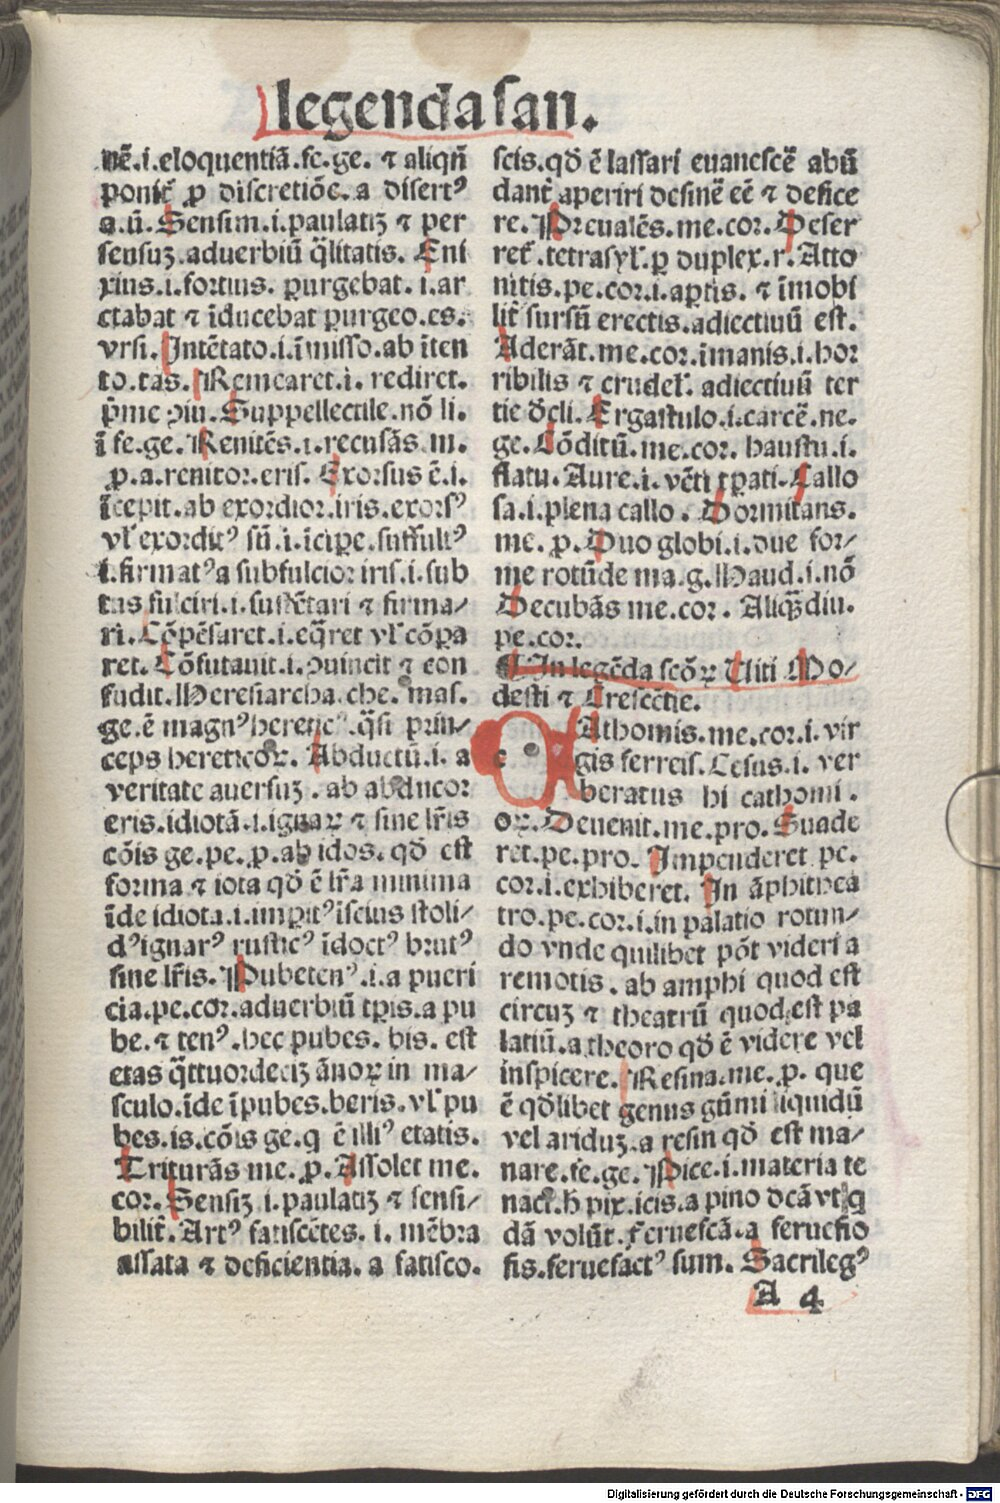 legenda san.
nẽ.i.eloquentiã.fe.ge. ⁊ aliqñ
ponit̃ ꝓ discretiõe. a disertꝰ
a.ũ. Sensim.i.paulatiʒ ⁊ per
sensuʒ.aduerbiũ q̃litatis. Eni
xius.i.fortius. purgebat.i.ar
ctabat ⁊ ĩducebat purgeo.es.
vrsi. Intẽtato.i.ĩmisso.ab ĩten
to.tas. Remearet.i. rediret.
p̃me ꝯiu. Suppellectile.nõ li.
ĩ fe.ge. Renitẽs.i.recusãs.m.
ꝓ.a.renitor.eris. Exorsus ẽ.i.
ĩcepit.ab exordior.iris.exorsꝰ
vl̃ exorditꝰ sũ.i.ĩcipe.suffultꝰ
i.firmatꝰ a subfulcior iris.i.sub
tus fulciri.i.sustẽtari ⁊ firma/
ri. Cõpẽsaret.i.eq̃ret vl̃ cõpa
ret. Cõfutauit.i.ꝯuincit ⁊ con
fudit. Heresiarcha.che. mas.
ge.ẽ magnꝰ hereticꝰ.q̃si prin/
ceps hereticoꝝ. Abductũ.i. a
veritate auersuʒ. ab abducor
eris.idiotã.i.ignaꝝ ⁊ sine lr̃is
cõis ge.pe.ꝓ.ab idos. qd̃ est
forma ⁊ iota qd̃ ẽ lr̃a minima
ĩde idiota.i.imꝑitꝰ ĩscius stoli/
dꝰ ignarꝰ rusticꝰ ĩdoctꝰ brutꝰ
sine lr̃is. Pubetenꝰ.i.a pueri
cia.pe.cor.aduerbiũ tꝑis.a pu
be.⁊ tenꝰ.hec pubes. bis. est
etas q̃ttuordeciʒ ãnoꝝ in ma/
sculo.ĩde ĩpubes.beris.vl̃ pu
bes.is.cõis ge.q ẽ illiꝰ etatis.
Triturãs me.ꝓ. Assolet me.
cor. Sensiʒ i.paulatiʒ ⁊ sensi/
bilit̃. Artꝰ fatiscẽtes. i. mẽbra
assata ⁊ deficientia. a fatisco.
scis.qd̃ ẽ lassari euanescẽ abũ
dant̃ aperiri desinẽ eẽ ⁊ defice
re. Preualẽs.me.cor. Deser
ret̃.tetrasyl̃.ꝑ duplex.r. Atto
nitis.pe.cor.i.aptis. ⁊ ĩmobi
lit̃ sursũ erectis.adiectiuũ est.
Aderãt.me.cor.ĩmanis.i.hor
ribilis ⁊ crudel̃. adiectiuũ ter
tie d̃cli. Ergastulo.i.carcẽ.ne.
ge. Cõditũ.me.cor. haustu.i.
flatu. Aure.i. vẽti tꝑati. Callo
sa.i.plena callo. Dormitans.
me. ꝓ. Duo globi.i.due for/
me rotũde ma.g. Haud.i.nõ
Decubãs me.cor. Aliq̃diu.
pe.cor.
¶ In legẽda scõꝝ Uiti Mo/
desti ⁊ Crescẽtie.
CAthomis.me.cor.i.vir
gis ferreis. Cesus.i. ver
beratus hi cathomi.
oꝝ. Deuenit.me.pro. Suade
ret.pe.pro. Impenderet pe.
cor.i.exhiberet. In ãphithea
tro.pe.cor.i.in palatio rotun/
do vnde quilibet põt videri a
remotis. ab amphi quod est
circuʒ ⁊ theatrũ quod est pa
latiũ.a theoro qd̃ ẽ videre vel
inspicere. Resina.me.ꝓ. que
ẽ qd̃libet genus gũmi liquidũ
vel ariduʒ.a resin qd̃ est ma/
nare.fe.ge. Pice.i.materia te
nacĩ.h̃ pix.icis.a pino dcã vt q
dã volũt. feruescã.a feruefio
fis.feruefactꝰ sum. Sacrilegꝰ
A 4
Digitalisierung gefördert durch die Deutsche Forschungsgemeinschaft - DFG